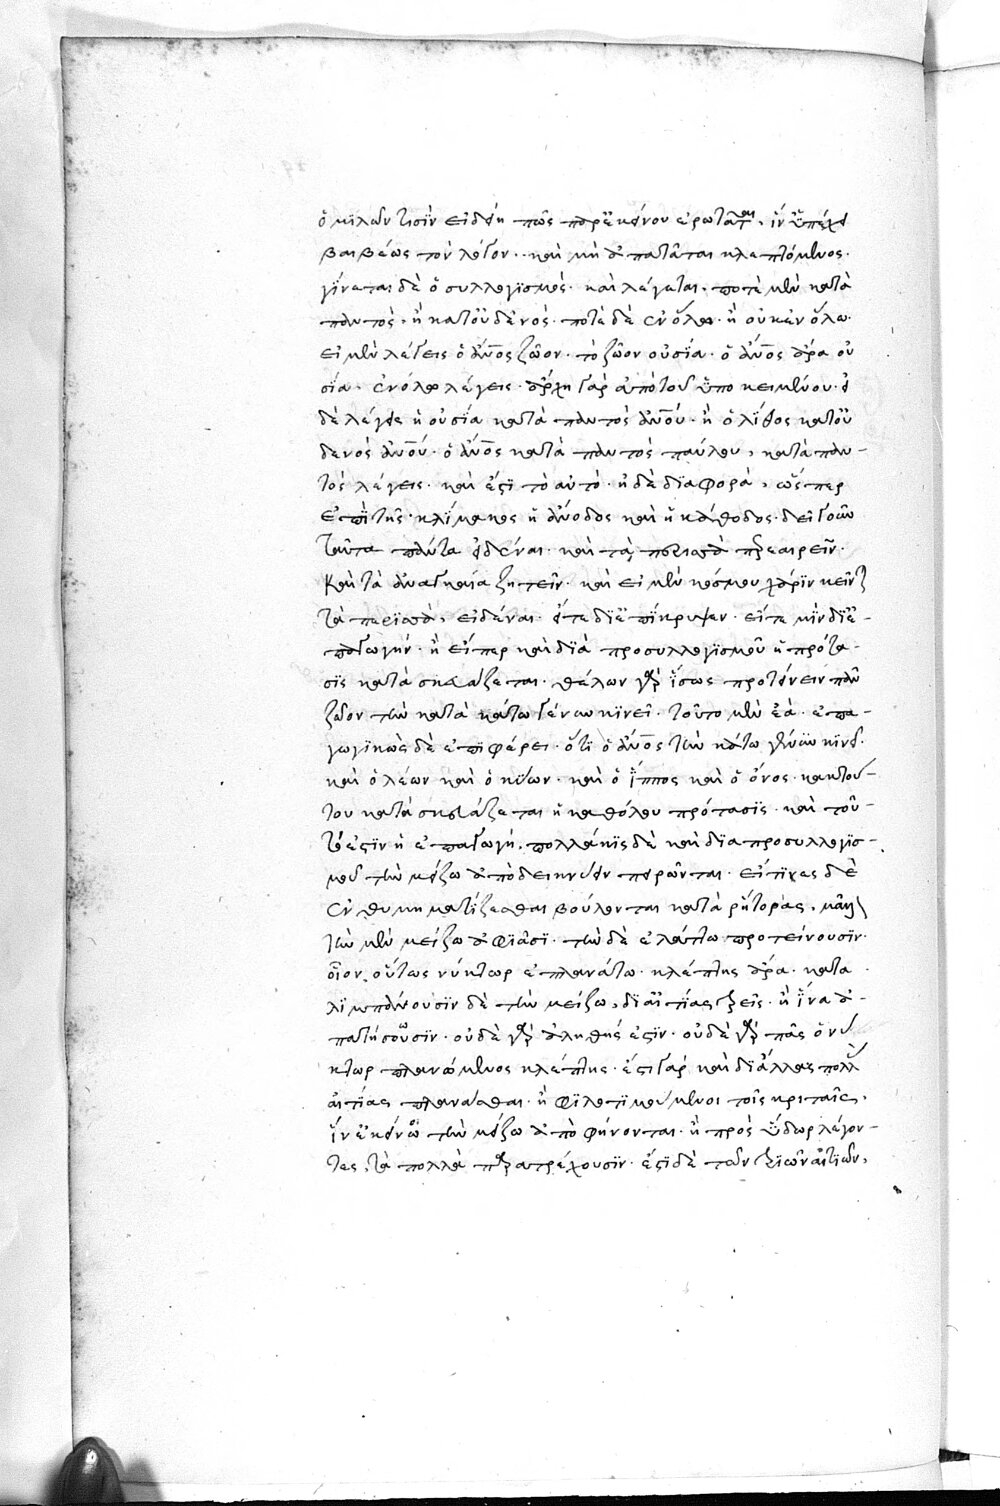 ὁμιλῶν τισὶν εἰδείη πῶς παρ' ἐκείνου ἐρωτᾶται. ἵν' ὑπέχει
βαιβέως τὸν λόγον. καὶ μὴ ἀπατᾶται κλεπτόμενος.
γίνεται δὲ ὁ συλλογισμός. καὶ λέγεται. ποτὲ μὲν κατὰ
παντός. ἢ κατ' οὐδενός. ποτὲ δὲ ἐν ὅλω. ἢ οὐκ ἐν ὅλω.
εἰ μὲν λέγεις ὁ ἄνος ζῶον. τὸ ζῶον οὐσία. ὁ ἄνος ἄρα οὐ
σία. ἐν ὅλω λέγεις. ἄρχη γὰρ ἀπὸ τοῦ ὑποκειμένου. εἰ
δὲ λέγει ἡ οὐσία κατὰ παντὸς ἀνου. ἢ ὁ λίθος κατ' οὐ
δενὸς ἀνου. ὁ ἄνος κατὰ παντὸς παύλου, κατὰ παν-
τὸς λέγεις. καὶ ἔστι τὸ αὐτό. ἡ δὲ διαφορά, ὥσπερ
ἐπὶ τῆς κλίμακος ἡ ἄνοδος καὶ ἡ κάθοδος. δεῖ γοῦν
ταῦτα πάντα εἰδέναι. καὶ τὰ περιττὰ προεαιρεῖν.
καὶ τὰ ἀναγκαία ζητεῖν. καὶ εἰ μὲν κόσμου χάριν κεῖν
τὰ περιττά, εἰδέναι. εἴτε δι' ἐπίκρυψιν. εἴτε μὴν δι' ἐ-
παγωγήν. ἢ εἴπερ καὶ διὰ προσυλλογισμοῦ ἡ πρότα-
σις κατασκευάζεται. θέλων γὰρ ἴσως προτείνειν πᾶν
ζῶον τὴν κάτω γένυν κινεῖ. τοῦτο μὲν ἐᾷ. ἐπα-
γωγικῶς δὲ ἐπιφέρει. ὅτι ὁ ἄνος τὴν κάτω γένυν κινεῖ.
καὶ ὁ λέων καὶ ὁ κύων. καὶ ὁ ἵππος καὶ ὁ ὄνος. κἀκ τού-
του κατασκευάζεται ἡ καθόλου πρότασις. καὶ τοῦ-
τό ἐστιν ἡ ἐπαγωγή. πολλάκις δὲ καὶ διὰ προσυλλογισ-
μοῦ τὴν μείζω ἀποδεικνύειν πειρῶνται. εἰ τινὲς δὲ
ἐνθυμηματίζεσθαι βούλονται κατὰ ῥήτορας.
τὴν μὲν μείζω ἀφιᾶσι. τὴν δὲ ἐλάττω προτείνουσιν.
οἷον. οὗτως νύκτωρ ἐπλανάτω. κλέπτης ἄρα. κατα
λιμπάνουσιν δὲ τὴν μείζω, δι' αἰτίας τρεῖς. ἢ ἵνα ἀ-
πατήσουσιν. οὐδὲ γὰρ ἀληθής ἐστιν. οὐδὲ γὰρ πᾶς ὁ νύ
κτωρ πλανώμενος κλέπτης. ἔστι γὰρ καὶ δι' ἄλλας πολλ
αἰτίας πλανᾶσθαι. ἢ φιλοτιμούμενοι τοῖς κριταῖς.
ἵν' ἐκείνω τὴν μείζω ἀποφήνονται. ἢ πρὸς ὕδωρ λέγον-
τες, τὰ πολλὰ παρατρέχουσιν. ἔστι δὲ τῶν τριῶν αἰτιῶν,